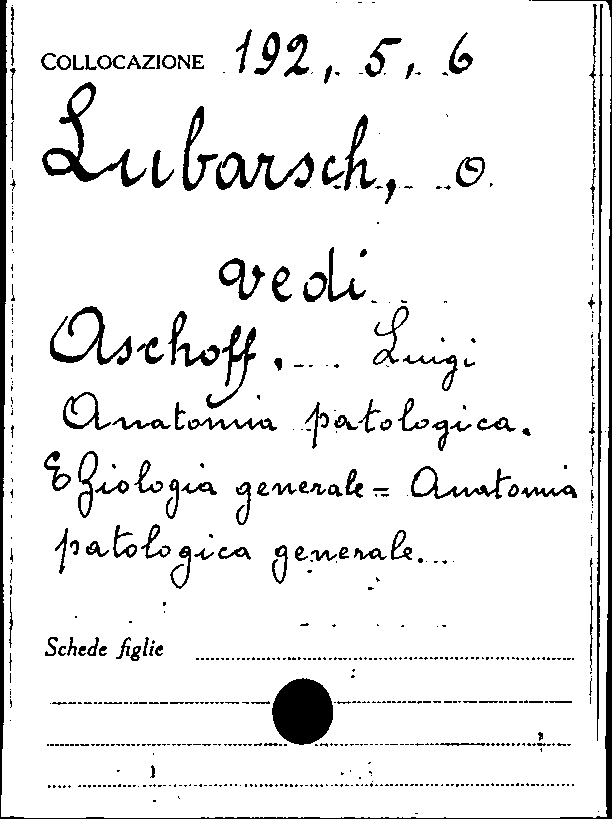 COLLOCAZIONE 192, 5, 6
Lubarsch, O.
vedi
Aschoff. Luigi
Anatomia patologica.
Eziologia generale = Anatomia
patologica generale.
Schede figlie